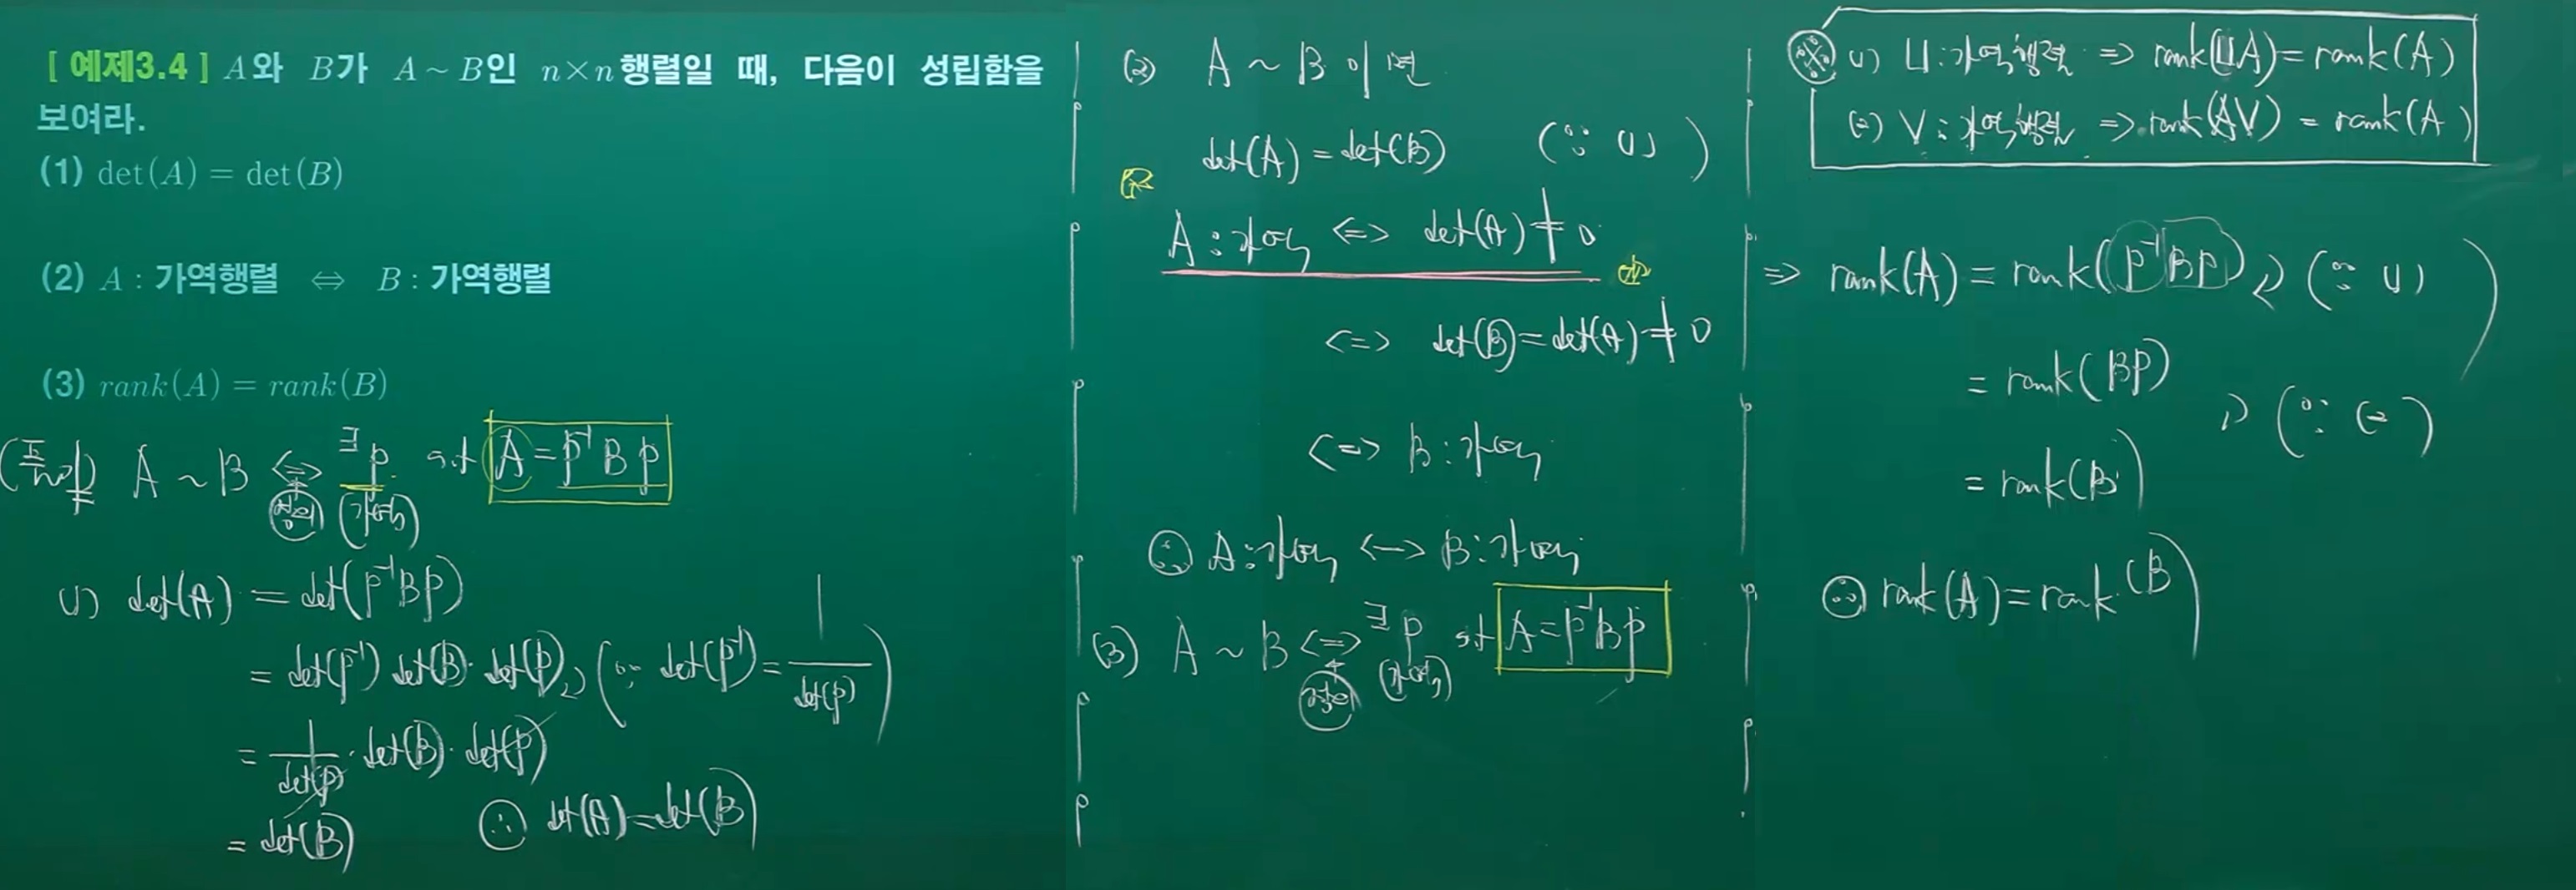 [ 예제3.4 ] A와 B가 A ~ B인 n×n 행렬일 때, 다음이 성립함을
보여라.
(1) det(A) = det(B)
(2) A : 가역행렬 ⇔ B : 가역행렬
(3) rank(A) = rank(B)
(풀이) A ~ B ⇔ ∃P s.t A = P⁻¹BP
(정의) (가역)
(1) det(A) = det(P⁻¹BP)
= det(P⁻¹) det(B)·det(P) (∵ det(P⁻¹) = 1/det(P))
= 1/det(P) · det(B) · det(P)
= det(B) ∴ det(A) = det(B)
(2) A ~ B 이면
det(A) = det(B) (∵ (1))
A : 가역 <=> det(A) ≠ 0
<=> det(B) = det(A) ≠ 0
<=> B : 가역
∴ A : 가역 <-> B : 가역
(3) A ~ B <=> ∃P s.t A = P⁻¹BP
(정의) (가역)
※ (1) U : 가역행렬 => rank(UA) = rank(A)
(2) V : 가역행렬 => rank(AV) = rank(A)
=> rank(A) = rank(P⁻¹BP) (∵ (1))
= rank(BP)
(∵ (2))
= rank(B)
∴ rank(A) = rank(B)